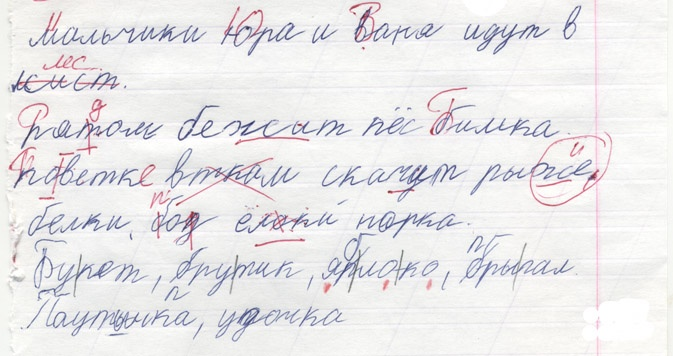 Мальчики Юра и Ваня идут в
лес.
Рятом бежит пёс Бимка.
Поветке скачут рыжие
белки, под ёлкй норка.
Букет, брутик, яблоко, прыгал
Паутинка, удочка